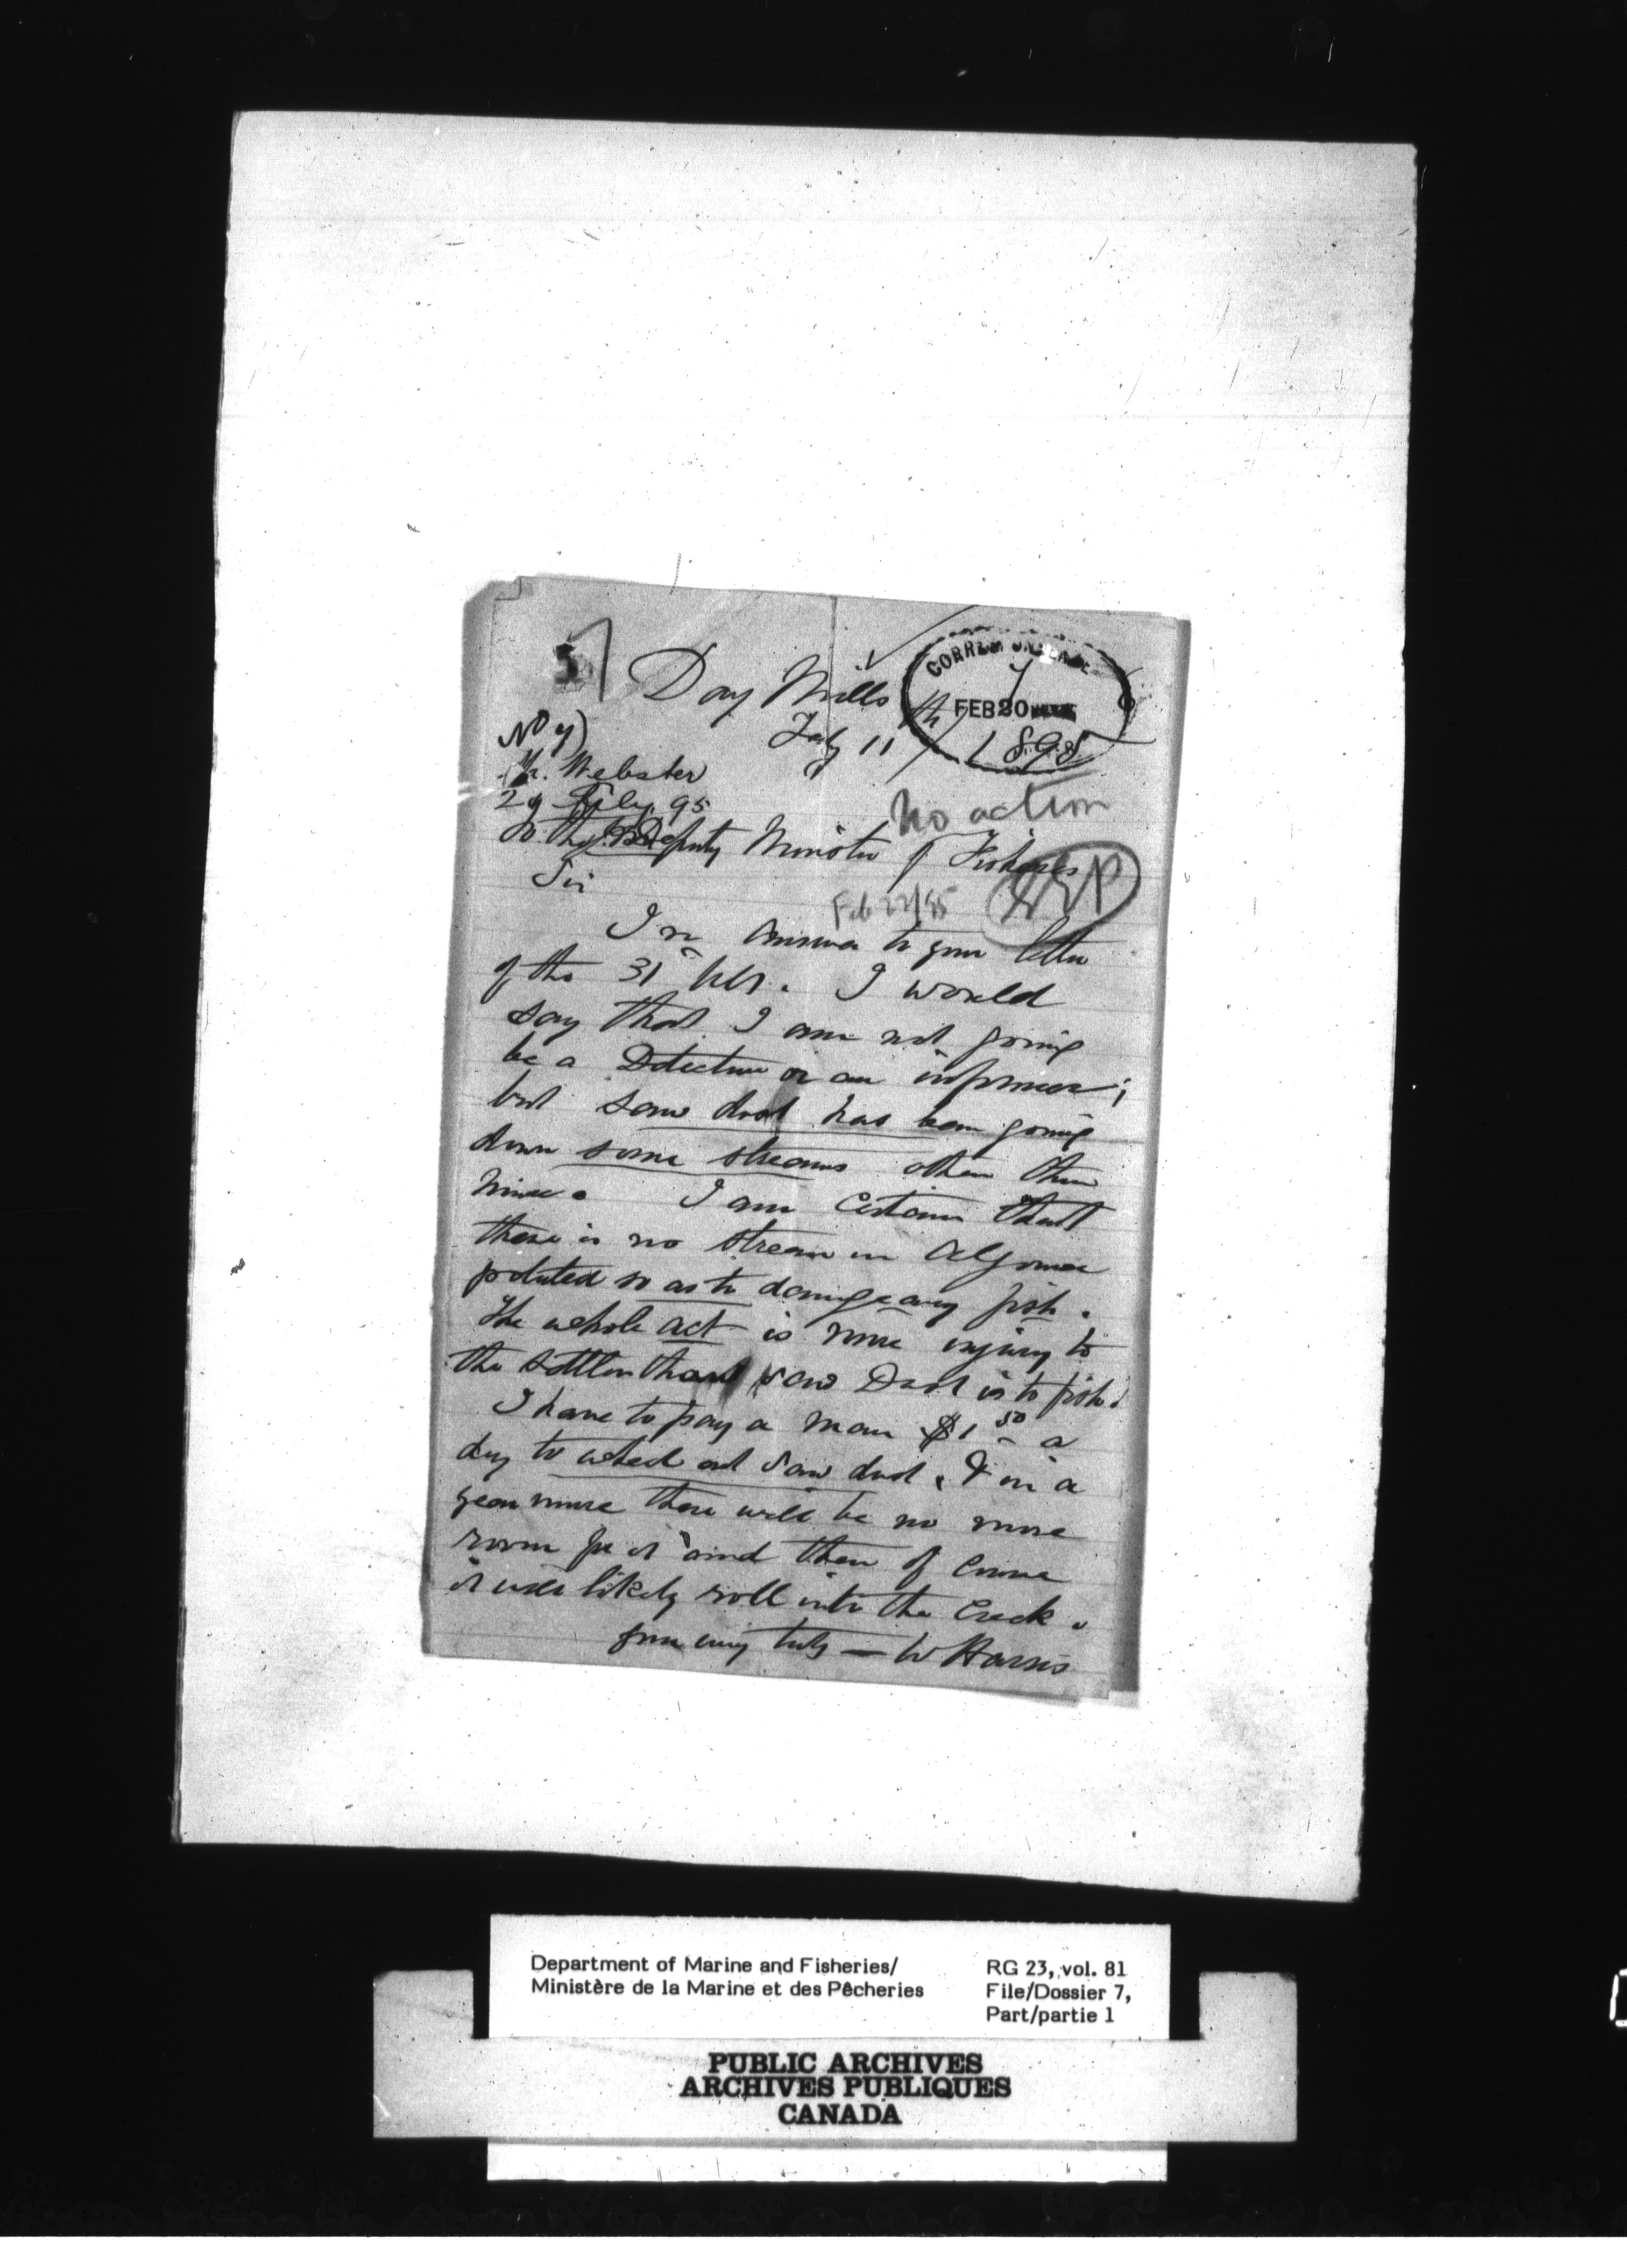 57
Day Mills
Feby 11th
CORRESPONDENCE
7
FEB 20
1895
No 7)
Mr. Webster
29 Feby. 95
No action
To the Deputy Minister of Fisheries
Sir
Feb 22/95
In answer to your letter
of the 31st ult. I would
say that I am not going
be a Detective or an informer;
but saw dust has been going
down some streams other than
mine. I am certain that
there is no stream in Algoma
poluted so as to damage any fish.
The whole act is more injury to
the settler than saw Dust is to fish.
I have to pay a man $1 50 a
day to wheel out saw dust, & in a
year more there will be no more
room for it and then of course
it will likely roll into the Creek.
your very truly — W Harris
Department of Marine and Fisheries/
Ministère de la Marine et des Pêcheries
RG 23, vol. 81
File/Dossier 7,
Part/partie 1
PUBLIC ARCHIVES
ARCHIVES PUBLIQUES
CANADA